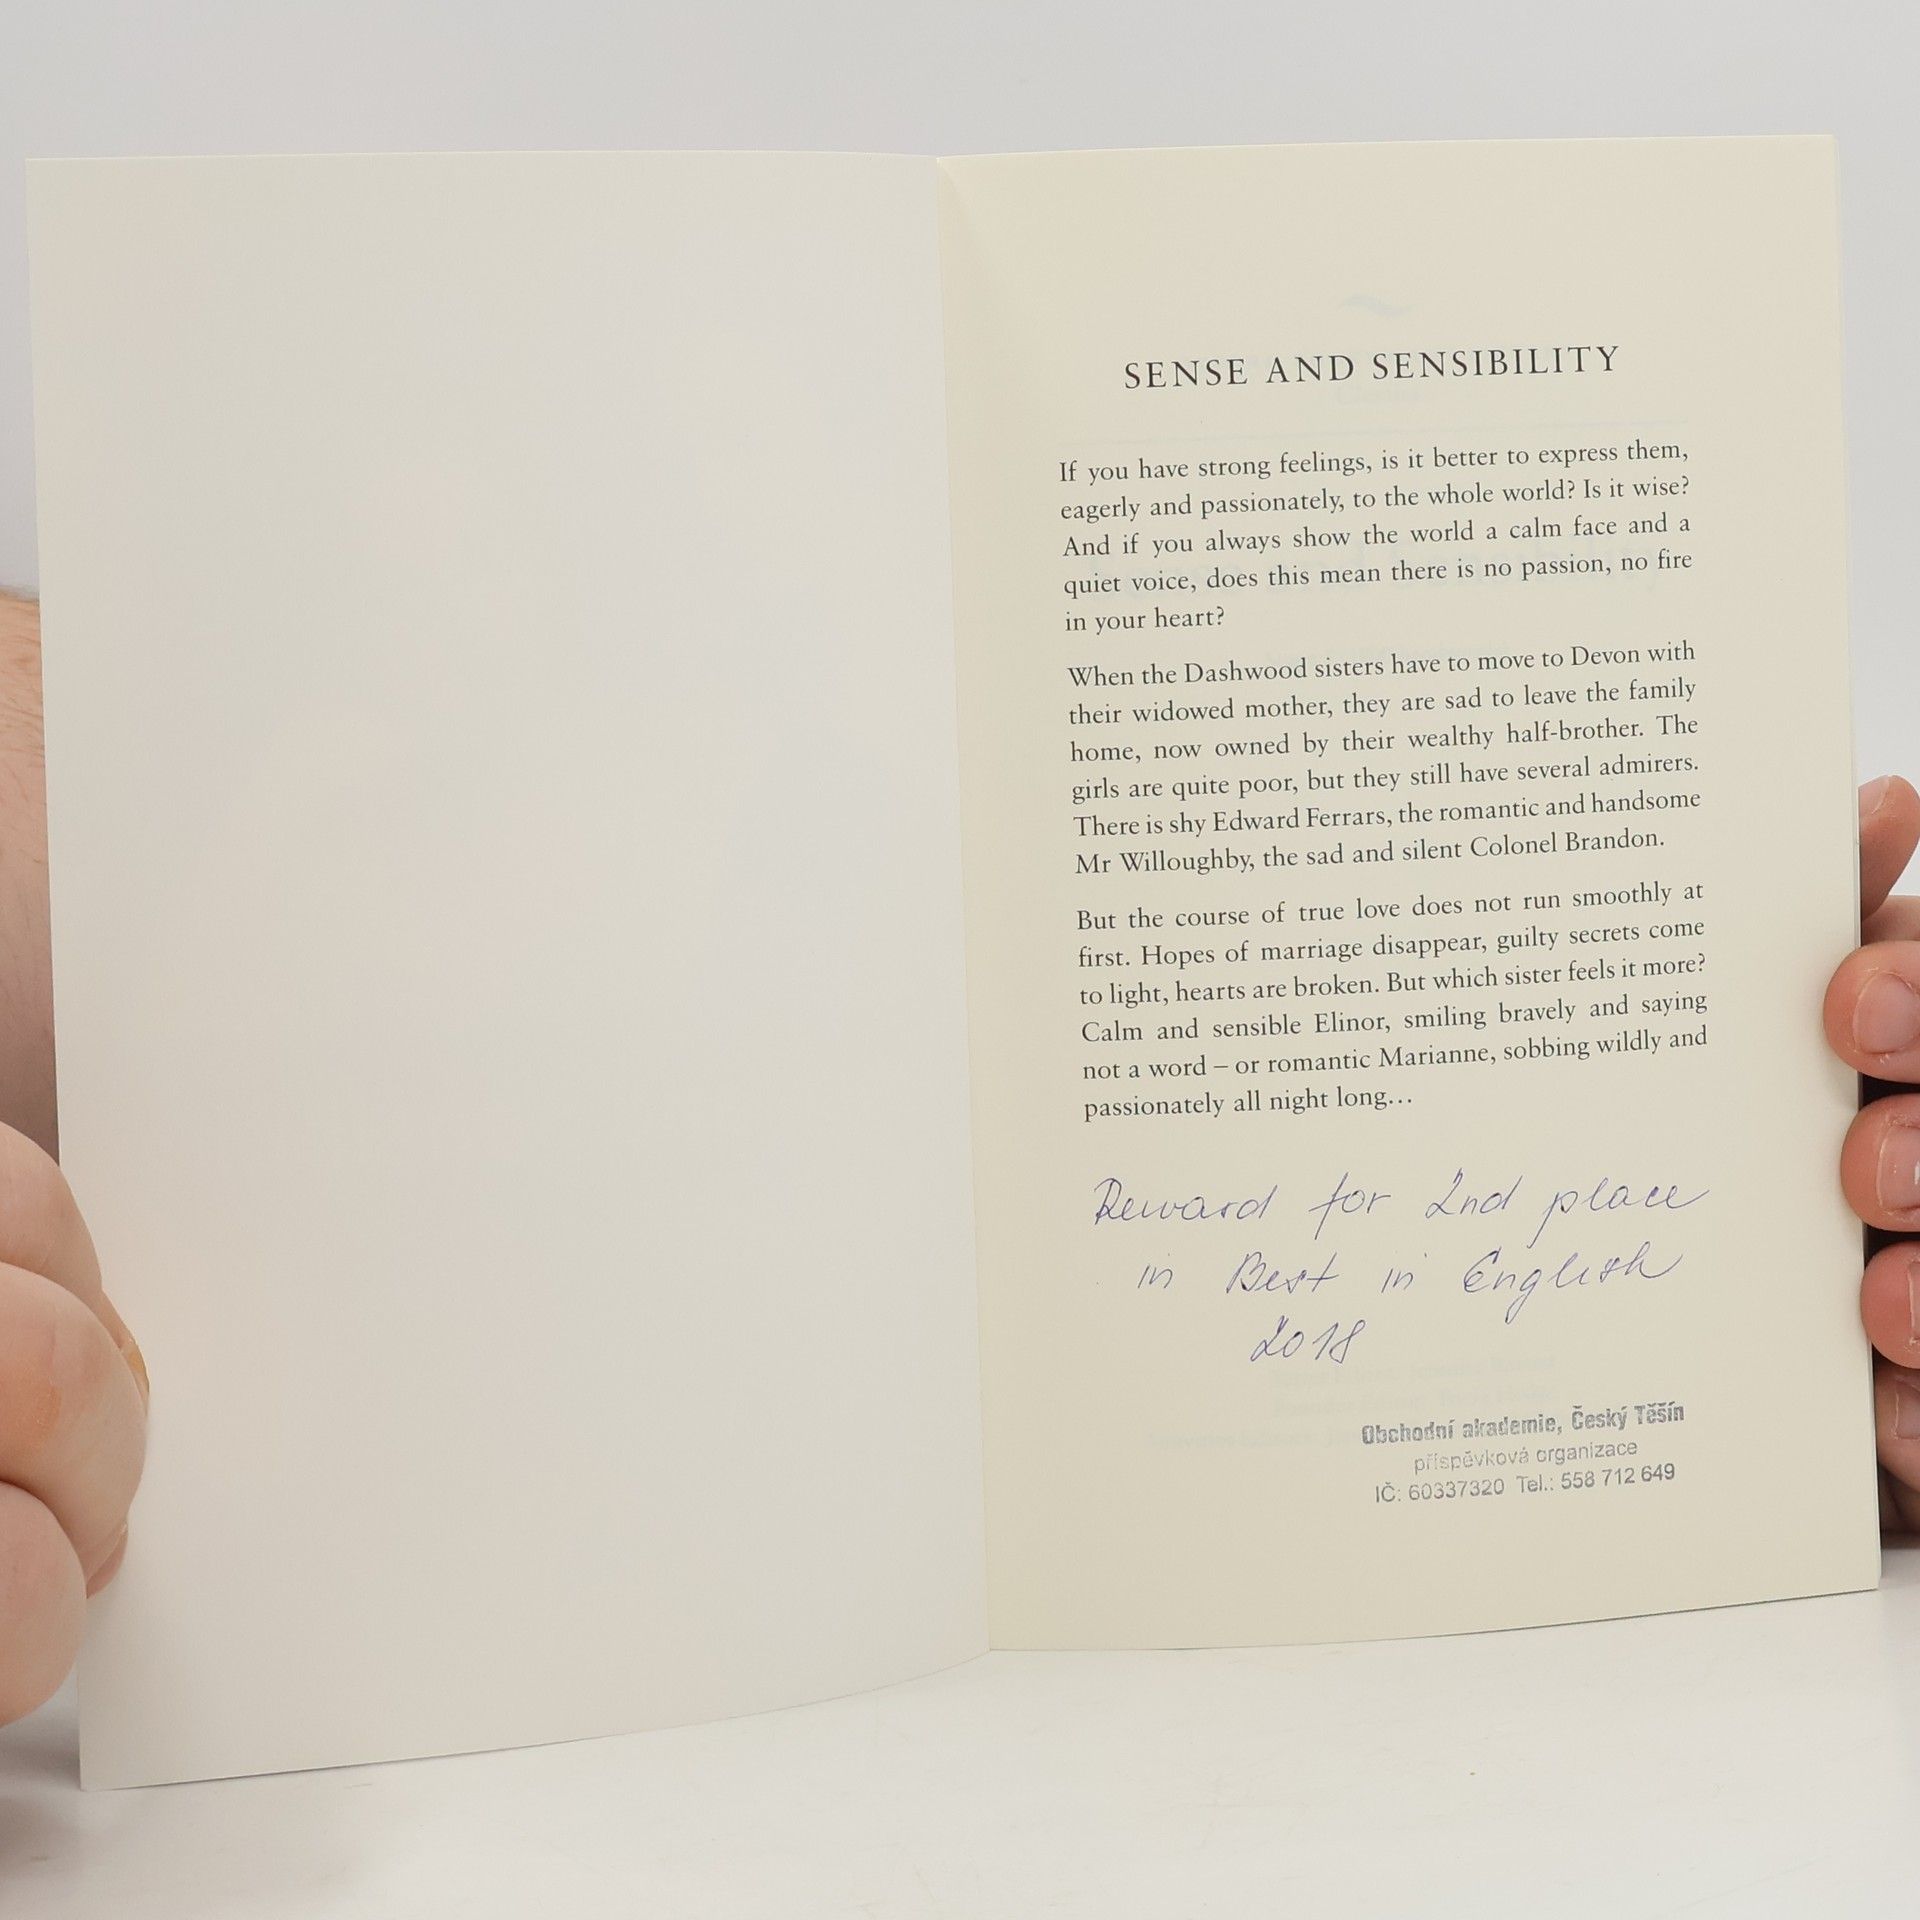 SENSE AND SENSIBILITY
If you have strong feelings, is it better to express them,
eagerly and passionately, to the whole world? Is it wise?
And if you always show the world a calm face and a
quiet voice, does this mean there is no passion, no fire
in your heart?
When the Dashwood sisters have to move to Devon with
their widowed mother, they are sad to leave the family
home, now owned by their wealthy half-brother. The
girls are quite poor, but they still have several admirers.
There is shy Edward Ferrars, the romantic and handsome
Mr Willoughby, the sad and silent Colonel Brandon.
But the course of true love does not run smoothly at
first. Hopes of marriage disappear, guilty secrets come
to light, hearts are broken. But which sister feels it more?
Calm and sensible Elinor, smiling bravely and saying
not a word – or romantic Marianne, sobbing wildly and
passionately all night long...
Reward for 2nd place
in Best in English
2018
Obchodní akademie, Český Těšín
příspěvková organizace
IČ: 60337320 Tel.: 558 712 649